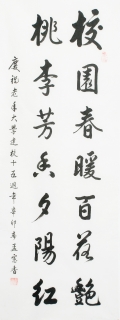 校園春暖百花艷
桃李芳香夕陽紅
慶祝老年大學建校十五週年 辛卯春 孟憲香